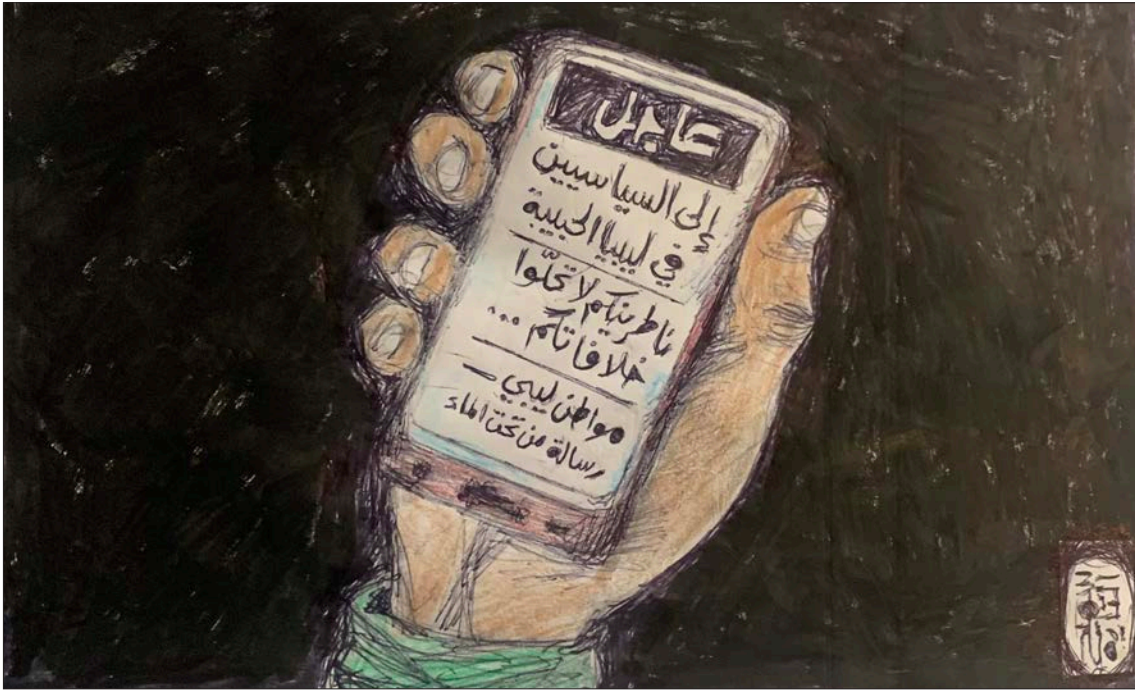 عاجل
إلى السياسيين
في ليبيا الحبيبة
ناطرينكم لا تحلّوا
خلافاتكم ...
مواطن ليبي -
رسالة من تحت الماء